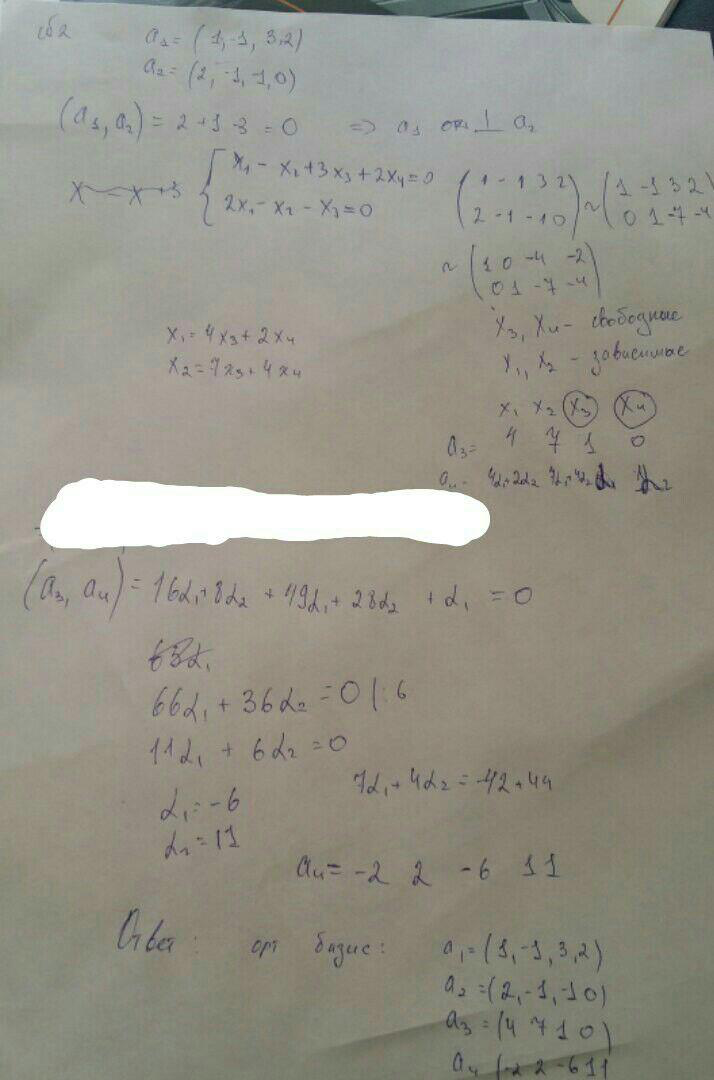 a₁ = (1, -1, 3, 2)
a₂ = (2, -1, -1, 0)
(a₁, a₂) = 2 + 1 - 3 = 0 => a₁ ⊥ a₂
{ x₁ - x₂ + 3x₃ + 2x₄ = 0
2x₁ - x₂ - x₃ = 0
(1 -1 3 2
2 -1 -1 0) ~ (1 -1 3 2
0 1 -7 -4)
~ (1 0 -4 -2
0 1 -7 -4)
x₁ = 4x₃ + 2x₄
x₂ = 7x₃ + 4x₄
x₃, x₄ - свободные
x₁, x₂ - зависимые
x₁ x₂ x₃ x₄
a₃ = 4 7 1 0
a₄ = 4α₁+2α₂ 7α₁+4α₂ α₁ α₂
(a₃, a₄) = 16α₁ + 8α₂ + 49α₁ + 28α₂ + α₁ = 0
66α₁ + 36α₂ = 0 |:6
11α₁ + 6α₂ = 0
7α₁ + 4α₂ = -42 + 44
α₁ = -6
α₂ = 11
a₄ = -2 2 -6 11
Ответ: орт базис:
a₁ = (1, -1, 3, 2)
a₂ = (2, -1, -1 0)
a₃ = (4 7 1 0)
a₄ (-2 2 -6 11